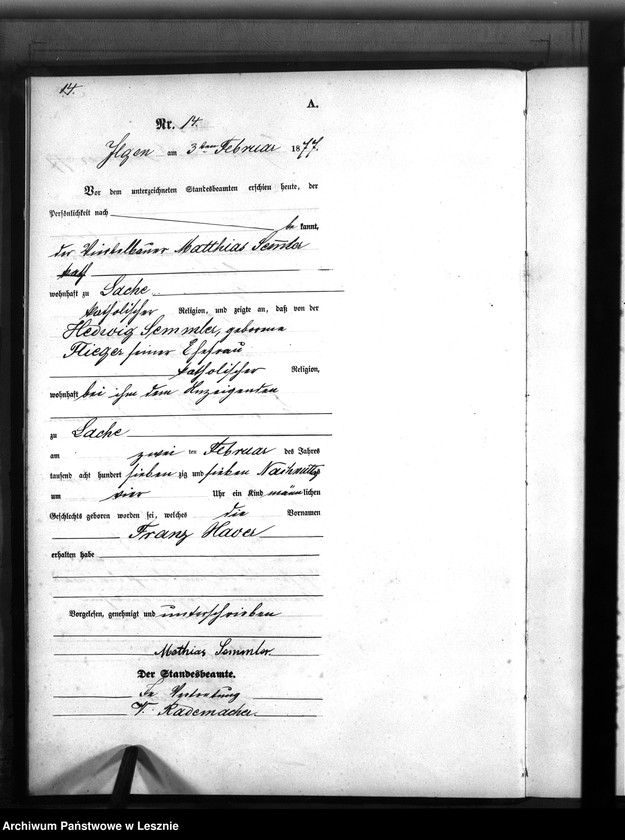 14.
A.
Nr. 14.
Ilgen am 3ten Februar 1877.
Vor dem unterzeichneten Standesbeamten erschien heute, der
Persönlichkeit nach
bekannt,
der Viertelbauer Matthias Semler
wohnhaft zu Lache
katholischer Religion, und zeigte an, daß von der
Hedwig Semmler, geborene
Flieger seiner Ehefrau
katholischer Religion,
wohnhaft bei ihm dem Anzeigenden
zu Lache
am zwei ten Februar des Jahres
tausend acht hundert sieben zig und sieben Nachmittag
um vier Uhr ein Kind männlichen
Geschlechts geboren worden sei, welches die Vornamen
Franz Xaver
erhalten habe
Vorgelesen, genehmigt und unterschrieben
Mathias Semmler.
Der Standesbeamte.
In Vertretung
V. Rademacher.
Archiwum Państwowe w Lesznie